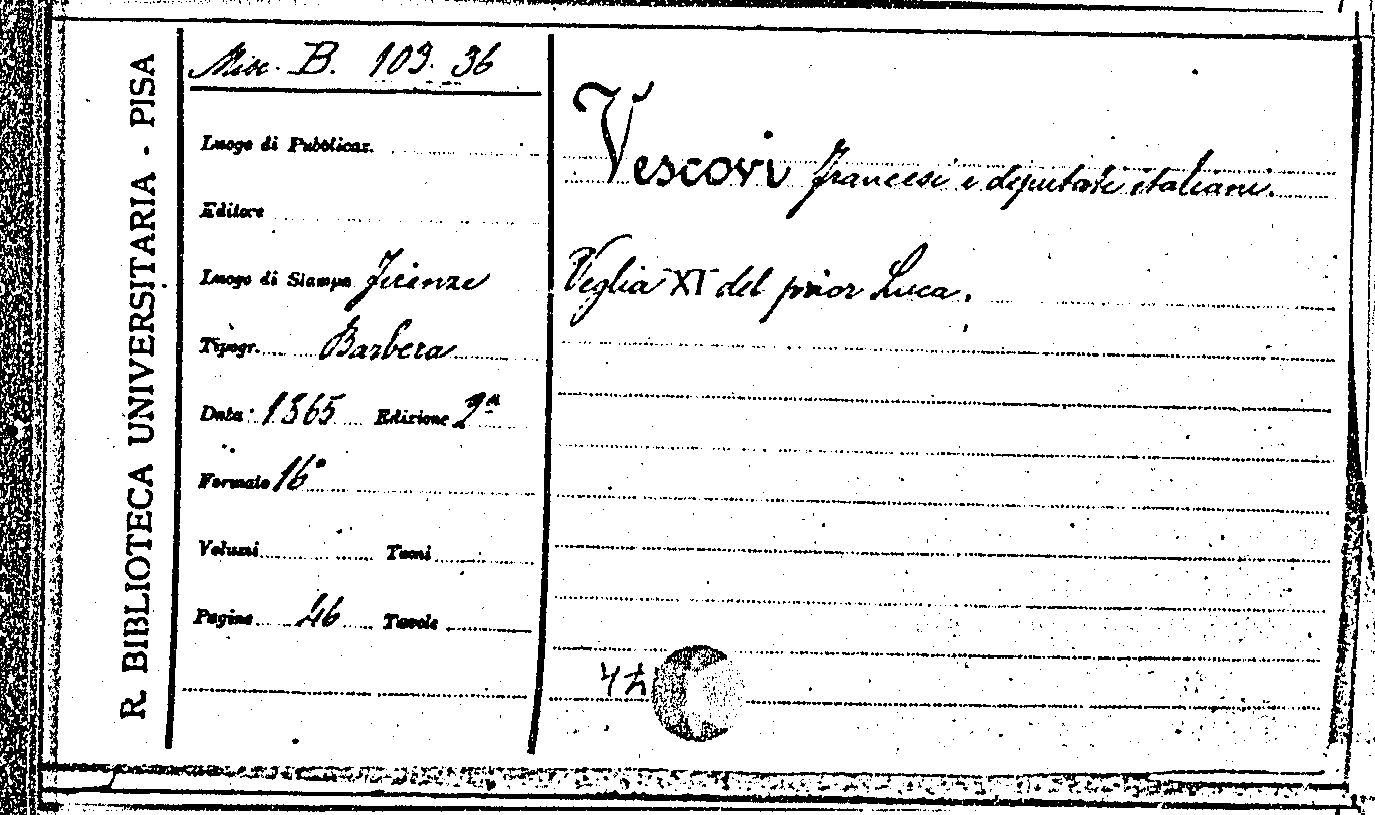 R. BIBLIOTECA UNIVERSITARIA - PISA
Misc. B. 103. 36
Luogo di Pubblicaz.
Editore
Luogo di Stampa Firenze
Tipogr. Barbera
Data 1865 Edizione 2ª
Formato 16°
Volumi Tomi
Pagine 46 Tavole
Vescovi francesi e deputati italiani.
Veglia XI del prior Luca.